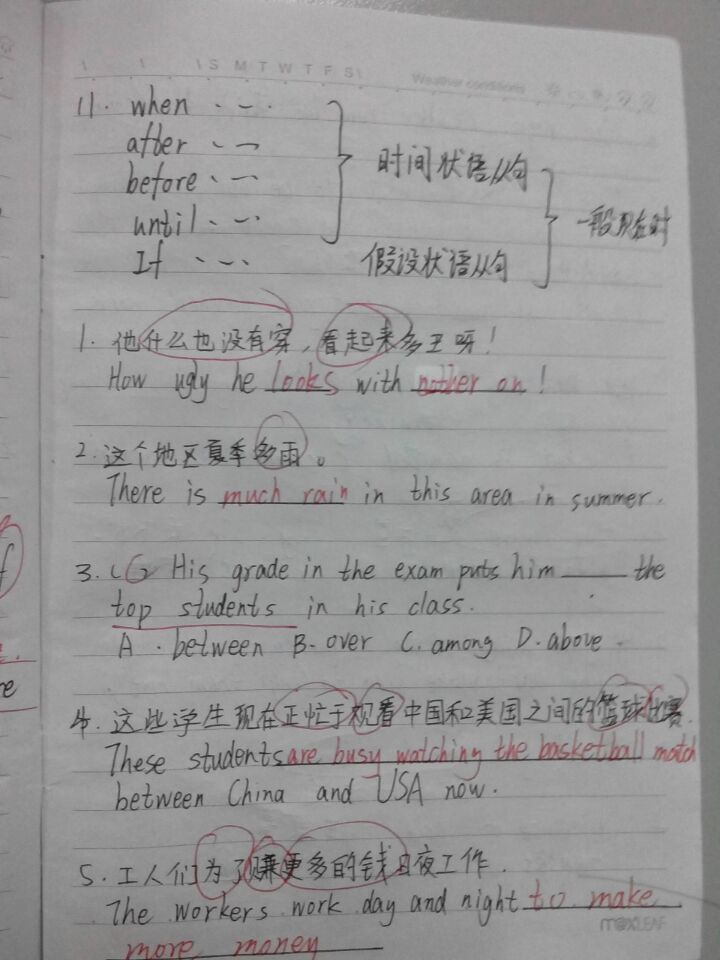 S M T W T F S Weather conditions
11. when
after
before
until
时间状语从句
If
假设状语从句
一般现在时
1. 他什么也没有穿，看起来多王呀！
How ugly he looks with nother on!
2. 这个地区夏季多雨。
There is much rain in this area in summer.
3. (C) His grade in the exam puts him ____ the
top students in his class.
A. between B. over C. among D. above.
4. 这些学生现在正忙于观看中国和美国之间的篮球比赛.
These students are busy watching the basketball match
between China and USA now.
5. 工人们为了赚更多的钱日夜工作.
The workers work day and night to make
more money
MAXLEAF